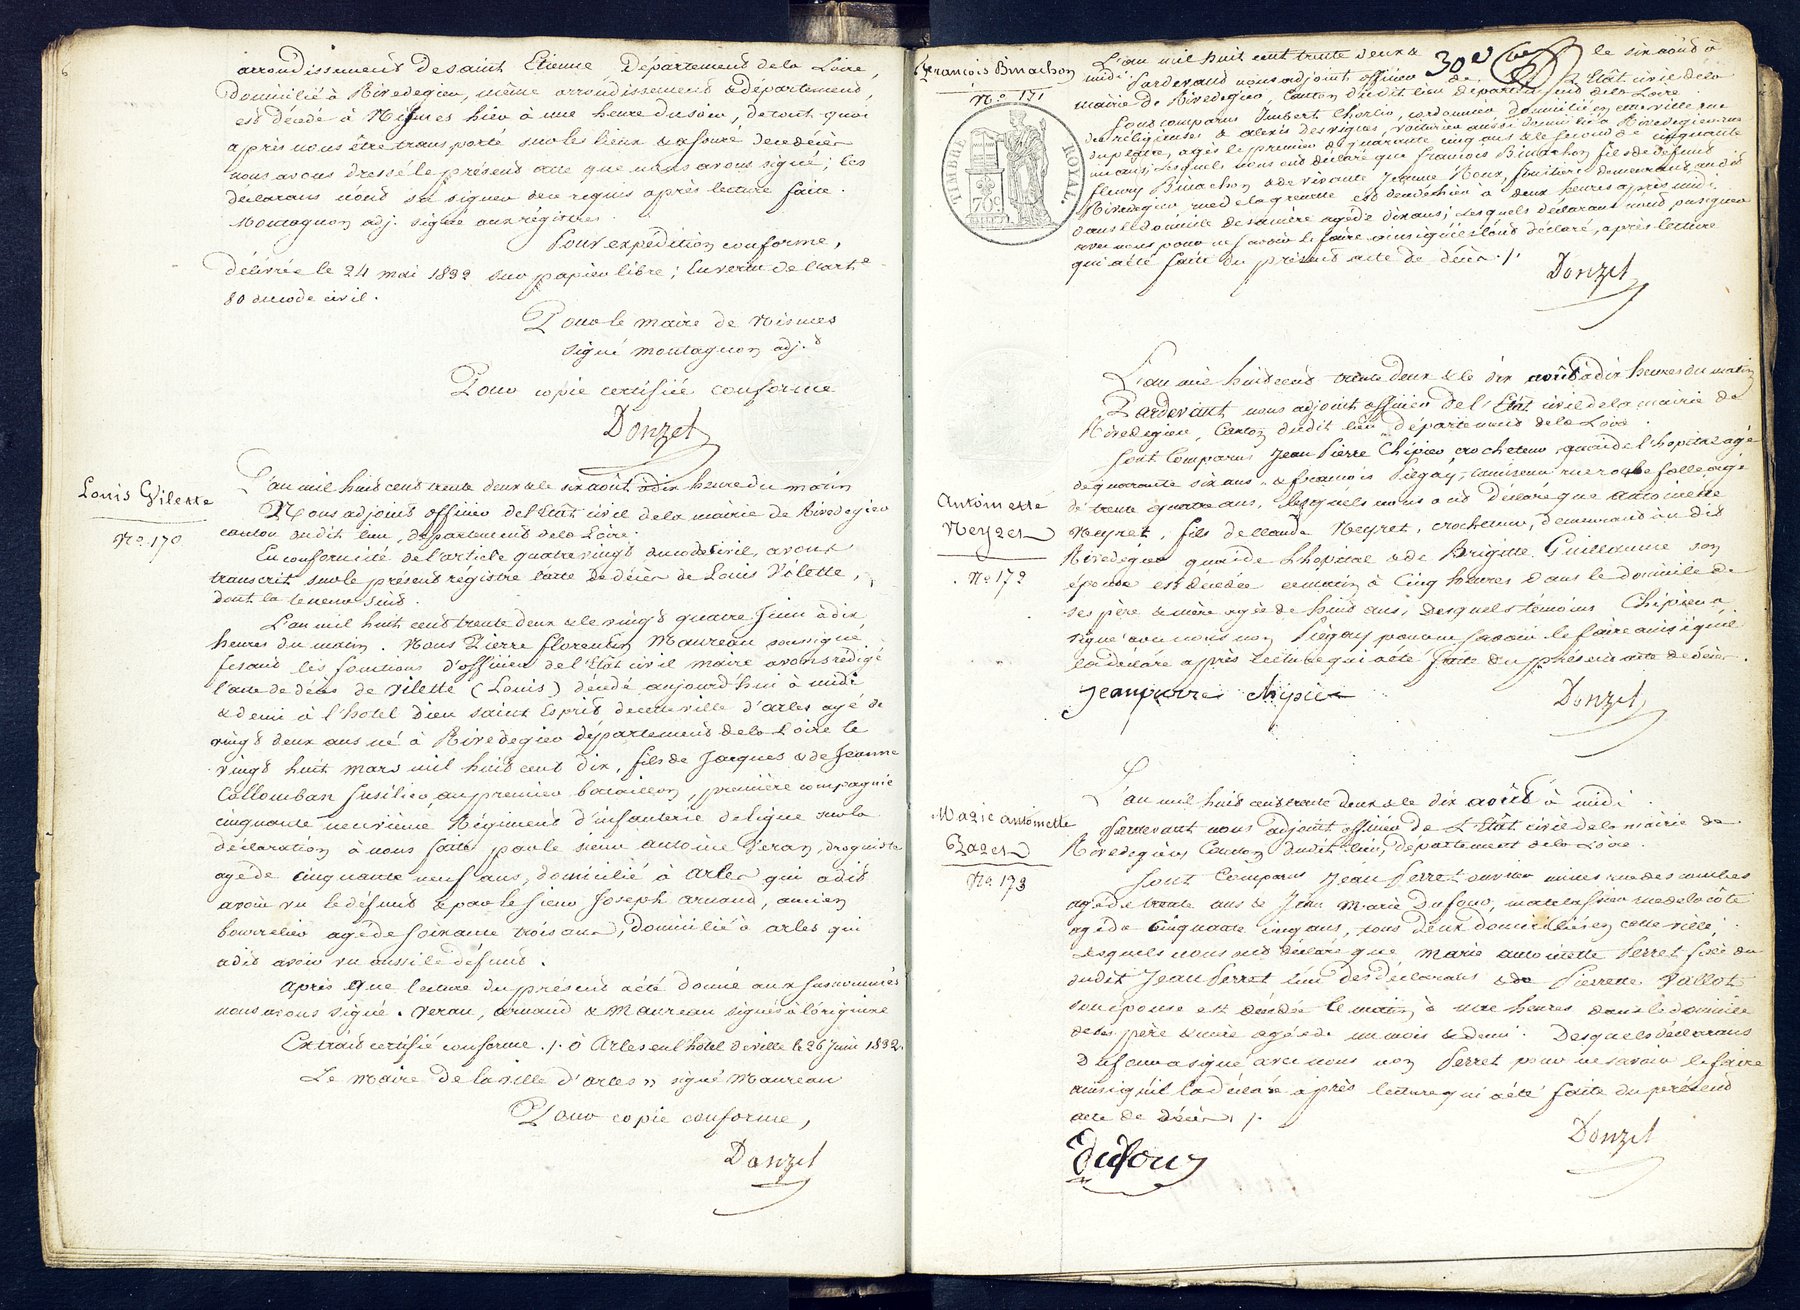 arrondissement de saint Etienne Département de la Loire,
Domicilié à Rivedegier, même arrondissement & département,
est décédé à Nismes hier à une heure du soir, de tout quoi
après nous être transporté sur les lieux & assuré de ce décès
nous avons dressé le présent acte que nous avons signé; les
déclarans n'ont su signer de ce requis après lecture faite.
Montagnon adj. signé aux régistres.
Pour expédition conforme,
délivrée le 24 mai 1832 sur papier libre; en vertu de l'arte
80 du code civil.
Pour le maire de Nismes
signé montagnon adj.t
Pour copie certifiée conforme
Donzel
Louis Vilette
No 170
L'an mil huit cent trente deux & le six août à dix heure du matin
Nous adjoint officier de l'Etat civil de la mairie de Rivedegier
canton dudit lieu, département de la Loire.
En conformité de l'article quatre vingt du code civil, avons
transcrit sur le présent régistre l'acte de décès de Louis Vilette,
dont la teneur suit.
L'an mil huit cent trente deux & le vingt quatre Juin à dix
heures du matin. Nous Pierre florentin Maureau soussigné
fesant les fonctions d'officier de l'Etat civil maire avons rédigé
l'acte de décès de Vilette (Louis) décédé aujourd'hui à midi
& demi à l'hotel Dieu saint Esprit de cette ville d'arles agé de
vingt deux ans né à Rivedegier département de la Loire le
vingt huit mars mil huit cent dix, fils de Jacques & de Jeanne
Collomban fusilier au premier bataillon, première compagnie
cinquante neuvième Régiment d'infanterie de ligne sur la
déclaration à nous faite par le sieur antoine Veran, droguiste
agé de cinquante neuf ans, domicilié à arles qui a dit
avoir vu le défunt & par le sieur Joseph arnaud, ancien
bourrelier agé de soixante trois ans, domicilié à arles qui
a dit avoir vu aussi le défunt.
Après que lecture du présent a été donné aux susnommés
nous avons signé. Veran, arnaud & Maureau signés à l'originine
Extrait certifié conforme ./. à Arles en l'hôtel de ville le 26 Juin 1832.
Le maire de la ville d'arles signé Maureau
Pour copie conforme,
Donzel
François Binachon
No 171
TIMBRE ROYAL.
70c
30e
L'an mil huit cent trente deux & le six août à
midi Pardevand nous adjoint officier de l'Etat civil de la
mairie de Rivedegier, Canton dudit lieu département de la Loire.
Sont comparus Imbert Chorlin, cordonnier, domicilié en cette ville rue
des religieuses & alexis desvignes, voiturier aussi domicilié à Rivedegier rue
du platre, agés le premier de quarante cinq ans & le second de cinquante
un ans, Lesquels nous ont déclaré que françois Binachon fils de défunt
fleury Binachon & de vivante Jeanne Roux, fruitière demeurant au dit
Rivedegier rue de la grenette est décédé hier à deux heures après midi
dans le domicile de sa mère agé de dix ans; Lesquels déclarans n'ont pu signer
avec nous pour ne savoir le faire ainsi qu'ils l'ont déclaré, après lecture
qui a été faite du présent acte de décès ./.
Donzel
Antoinette
Neyret
No 172
L'an mil huit cent trente deux & le dix août à dix heures du matin
Pardevant nous adjoint officier de l'Etat civil de la mairie de
Rivedegier, Canton dudit lieu département de la Loire.
Sont Comparus Jean Pierre Chipier crocheteur, quai de l'hopital agé
de quarante six ans & françois Piégay, tamiseur rue roche folle agé
de trente quatre ans, lesquels nous ont déclaré que antoinette
Neyret, fils de Claude Neyret, crocheteur, demeurant au dit
Rivedegier quai de l'hopital & de Brigitte Guillaume son
épouse est décédée ce matin à cinq heures dans le domicile de
ses père & mère agée de huit ans, desquels témoins Chipier a
signé avec nous non Piégay pour ne savoir le faire ainsi qu'il
l'a déclaré après lecture qui a été faite du présent acte de décès.
Jean pierre chipier
Donzel
Marie antoinette
Perret
No 173
L'an mil huit cent trente deux & le dix août à midi
Pardevant nous adjoint officier de l'Etat civil de la mairie de
Rivedegier, Canton dudit lieu, département de la Loire.
Sont Comparus Jean Perret ouvrier mines rue des combes
agé de trente ans & Jean Marie Dufour, matelassier rue de la côte
agé de cinquante cinq ans, tous deux domiciliés en cette ville,
Lesquels nous ont déclaré que Marie antoinette Perret fille du
dudit Jean Perret l'un des déclarans & de Pierrette Vallot
son épouse est décédée ce matin à une heures dans le domicile
de ses père & mère agée de un mois & demi. Desquels déclarans
Dufour a signé avec nous non Perret pour ne savoir le faire
ainsi qu'il l'a déclaré après lecture qui a été faite du présent
acte de décès ./.
Donzel
Dufour